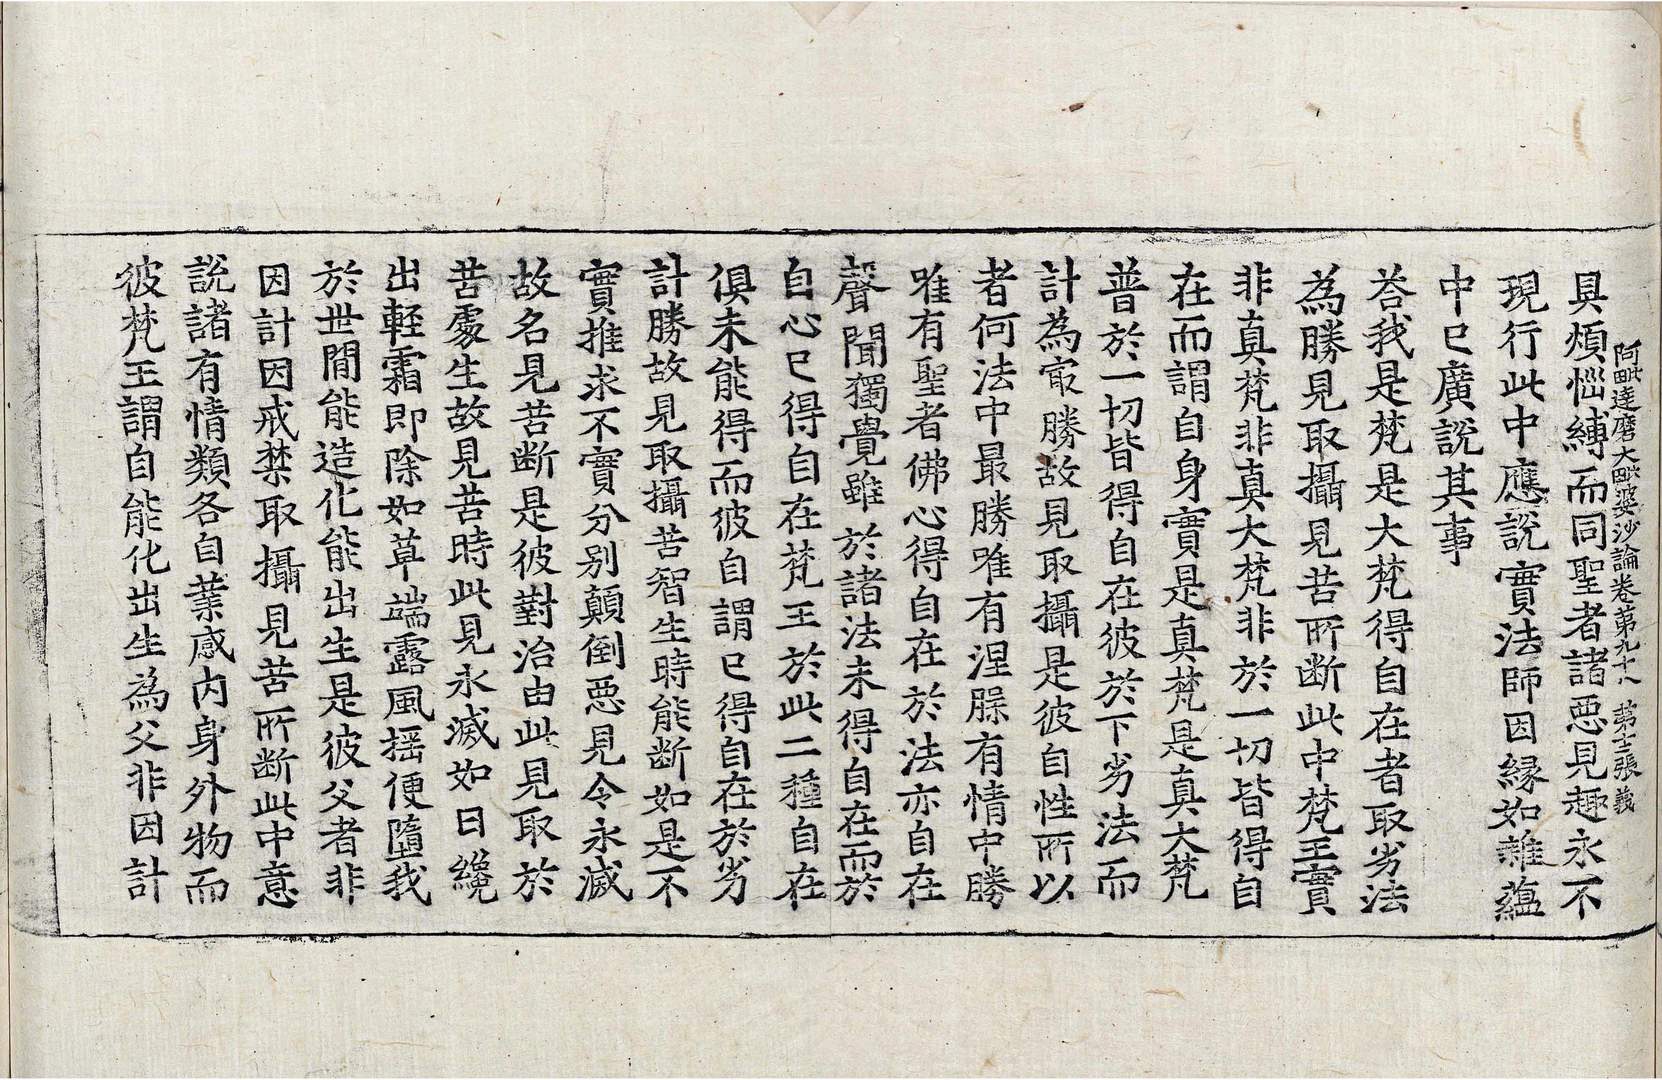 阿毗達磨大毗婆沙論卷第九十八 第十三張 義
具煩惱縛而同聖者諸惡見趣永不
現行此中應說實法師因緣如雜蘊
中已廣說其事
荅我是梵是大梵得自在者取劣法
為勝見取攝見苦所断此中梵王實
非真梵非真大梵非於一切皆得自
在而謂自身實是真梵是真大梵
普於一切皆得自在彼於下劣法而
計為㝡勝故見取攝是彼自性所以
者何法中最勝唯有涅槃有情中勝
唯有聖者佛心得自在於法亦自在
聲聞獨覺雖於諸法未得自在而於
自心已得自在梵王於此二種自在
俱未能得而彼自謂已得自在於劣
計勝故見取攝苦智生時能断如是不
實推求不實分別顛倒惡見令永滅
故名見苦断是彼對治由此見取於
苦處生故見苦時此見永滅如日纔
出輕霜即除如草端露風揺便墮我
於世間能造化能出生是彼父者非
因計因戒禁取攝見苦所断此中意
說諸有情類各自業感内身外物而
彼梵王謂自能化出生為父非因計